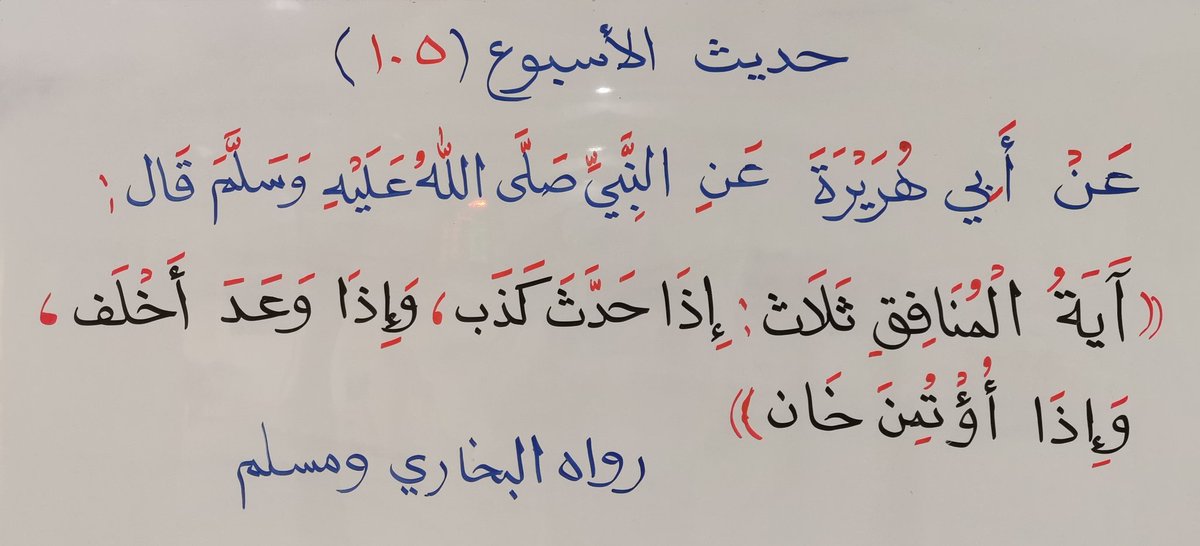 حديث الأسبوع (١٠٥)
عَنْ أَبِي هُرَيْرَةَ عَنِ النَّبِيِّ صَلَّى اللهُ عَلَيْهِ وَسَلَّمَ قَال:
((آيَةُ الْمُنَافِقِ ثَلَاث: إِذَا حَدَّثَ كَذَب، وَإِذَا وَعَدَ أَخْلَف،
وَإِذَا أُؤْتُمِنَ خَان))
رواه البخاري ومسلم